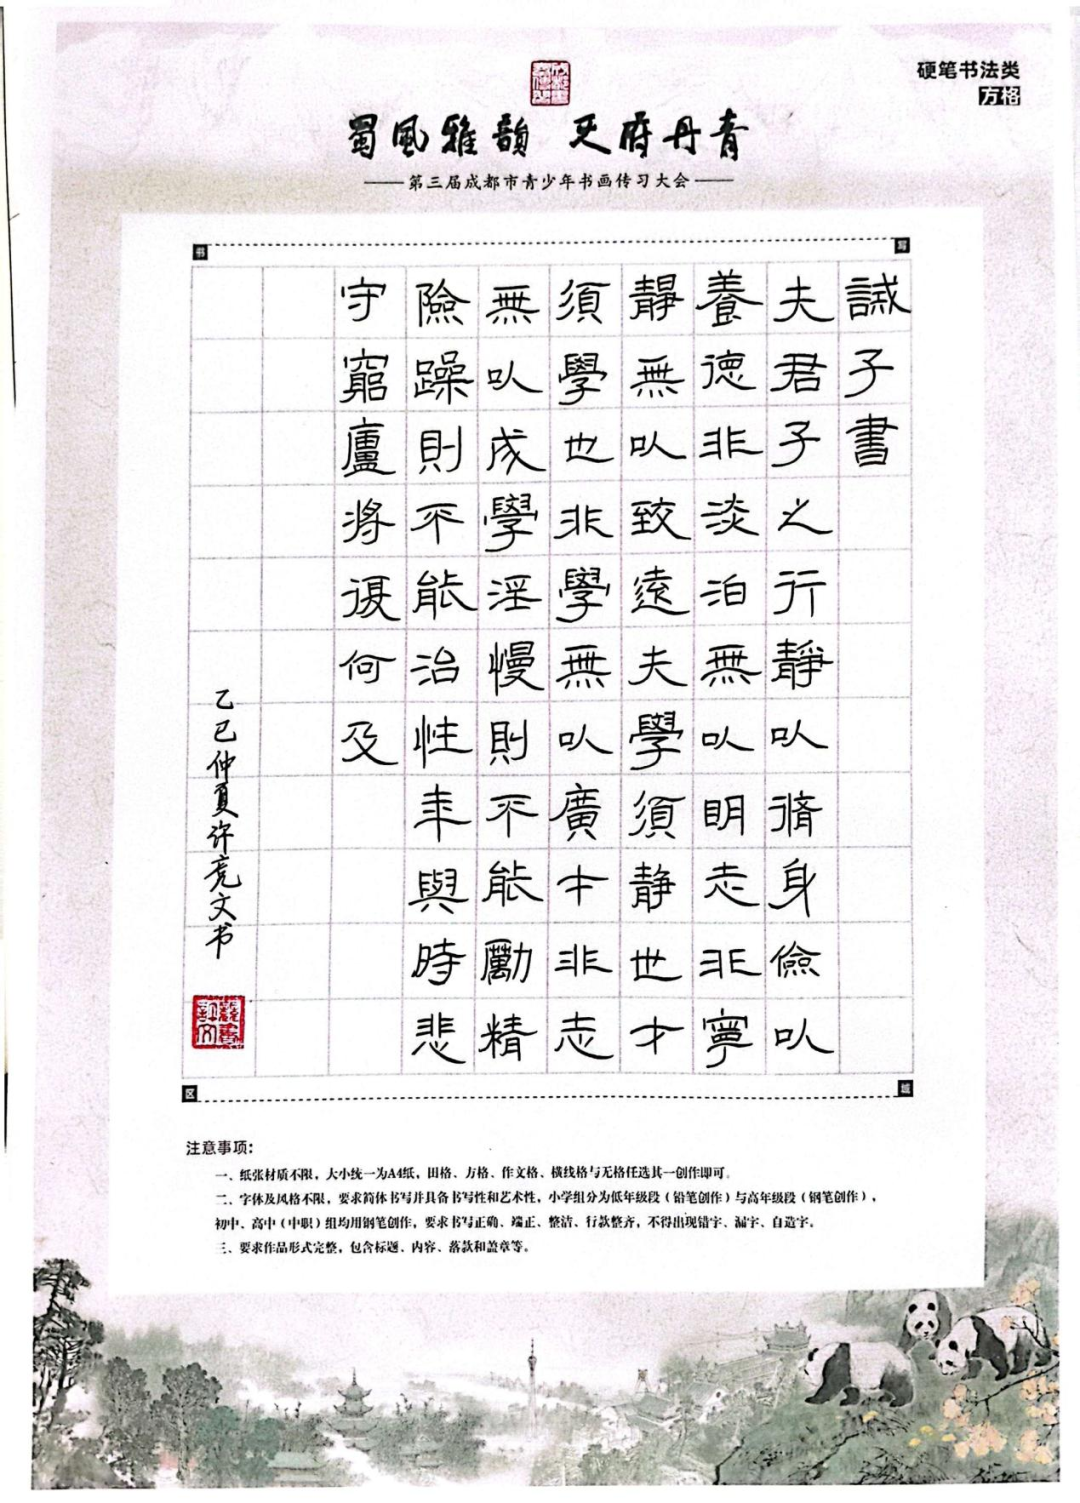 硬笔书法类
方格
蜀風雅韻 天府丹青
第三届成都市青少年书画传习大会
书 写
誡子書
夫君子之行靜以脩身儉以
養德非淡泊無以明志非寧
靜無以致遠夫學須静世才
須學也非學無以廣才非志
無以成學淫慢則不能勵精
險躁則不能治性年與時悲
守窮廬將復何及
乙巳仲夏许竞文书
区 域
注意事项：
一、纸张材质不限，大小统一为A4纸，田格、方格、作文格、横线格与无格任选其一创作即可。
二、字体及风格不限，要求简体书写并具备书写性和艺术性，小学组分为低年级段（铅笔创作）与高年级段（钢笔创作），
初中、高中（中职）组均用钢笔创作，要求书写正确、端正、整洁、行款整齐，不得出现错字、漏字、自造字。
三、要求作品形式完整，包含标题、内容、落款和盖章等。